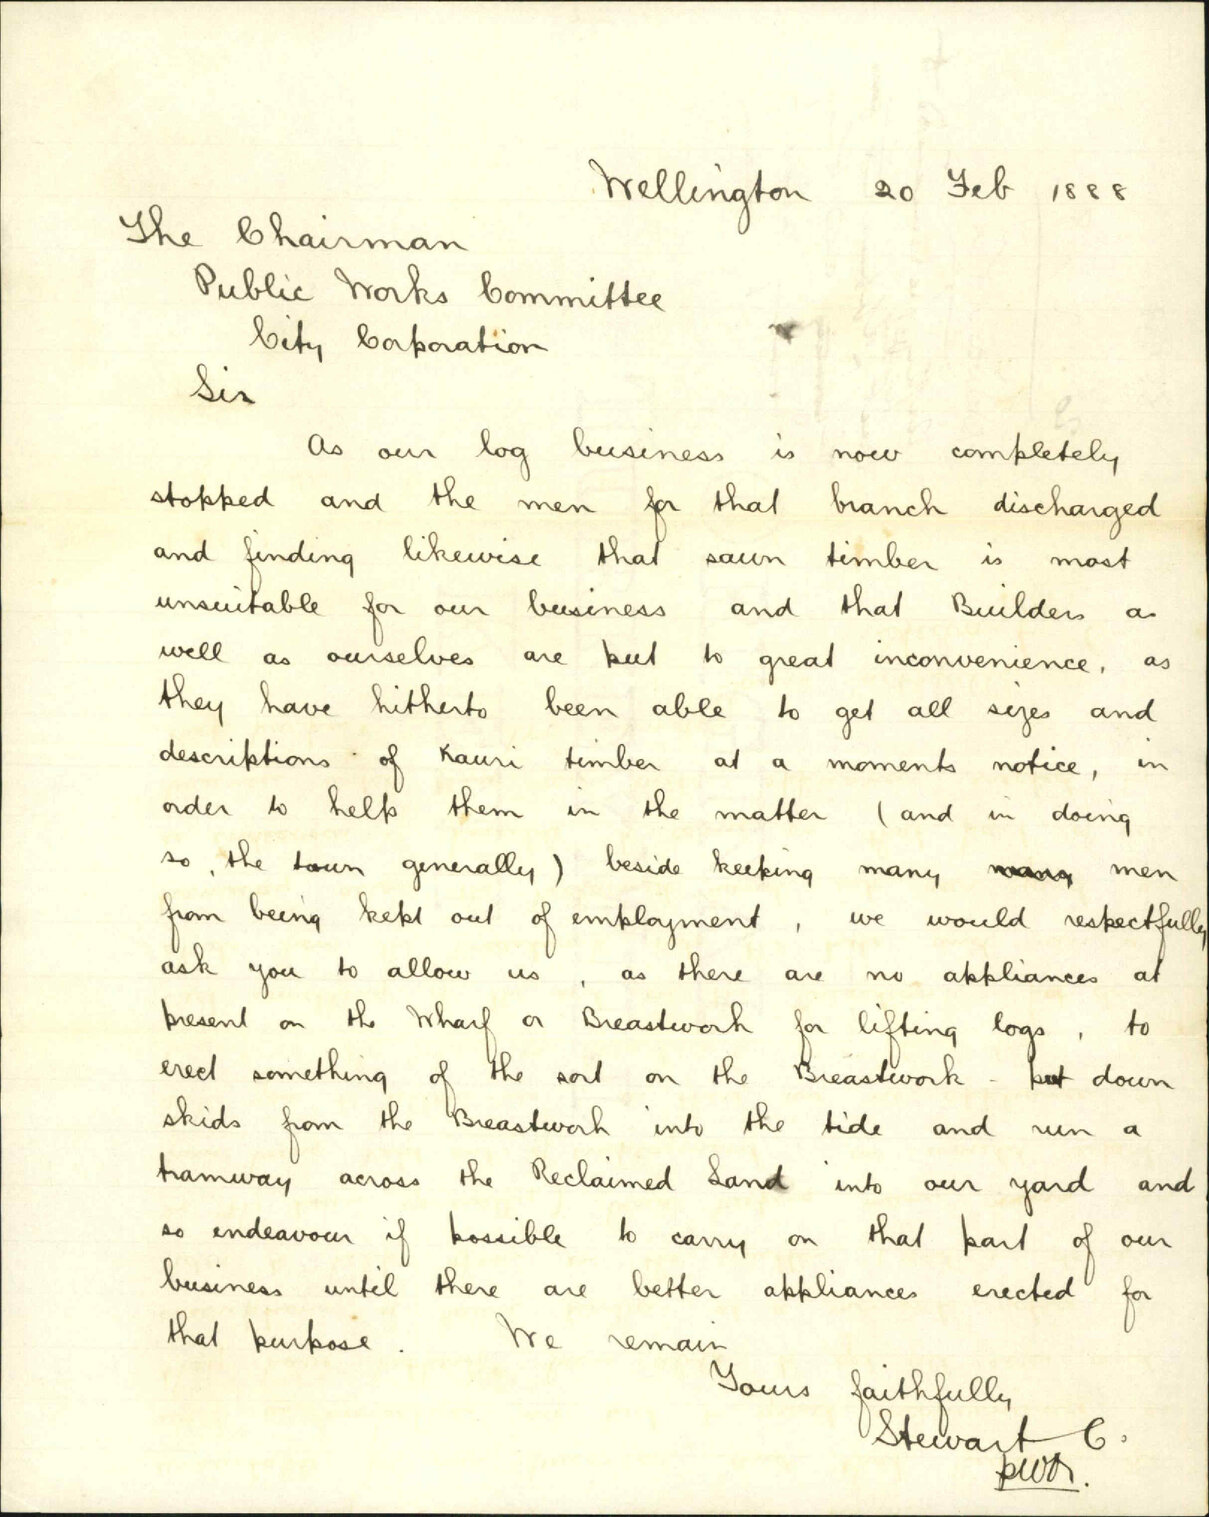 Wellington 20 Feb 1888
The Chairman
Public Works Committee
City Corporation
Sir
As our log business is now completely
stopped and the men for that branch discharged
and finding likewise that sawn timber is most
unsuitable for our business and that Builders as
well as ourselves are put to great inconvenience, as
they have hitherto been able to get all sizes and
descriptions of Kauri timber at a moments notice, in
order to help them in the matter (and in doing
so, the town generally) beside keeping many many men
from being kept out of employment, we would respectfully
ask you to allow us, as there are no appliances at
present on the Wharf or Breastwork for lifting logs, to
erect something of the sort on the Breastwork - put down
skids from the Breastwork into the tide and run a
tramway across the Reclaimed Land into our yard and
so endeavour if possible to carry on that part of our
business until there are better appliances erected for
that purpose. We remain
Yours faithfully
Stewart C.